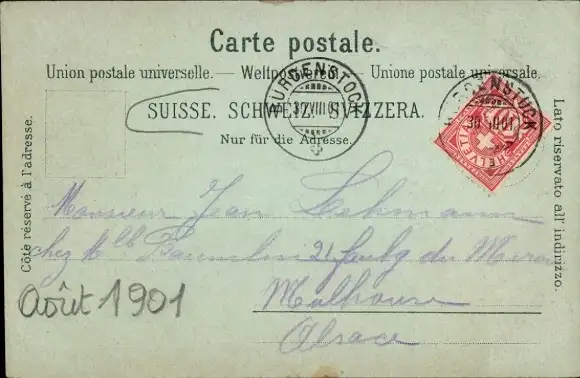 Carte postale.
Union postale universelle. — Weltpostverein. — Unione postale universale.
SUISSE. SCHWEIZ. SVIZZERA.
Nur für die Adresse.
Côté réservé à l'adresse.
Lato riservato all' indirizzo.
BURGENSTOCK
30.VIII.01
BURGENSTOCK
30.VIII.01
HELVETIA
Monsieur Jean Lehmann
chez Mlle 21 faubg du Miroir
Mulhouse
Alsace
Août 1901